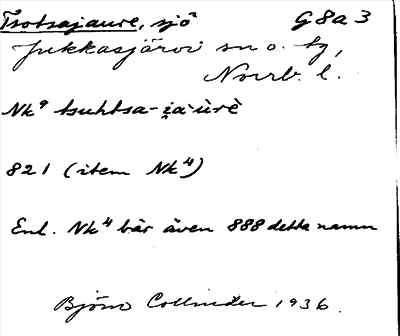 Tsotsajaure, sjö G8a3
Jukkasjärvi sn o. tg,
Norrb. l.
Nk⁹ tsuhtsa-i̯a·ùrè
821 (item Nk⁴)
Enl. Nk⁴ bär även 888 detta namn
Björn Collinder 1936.